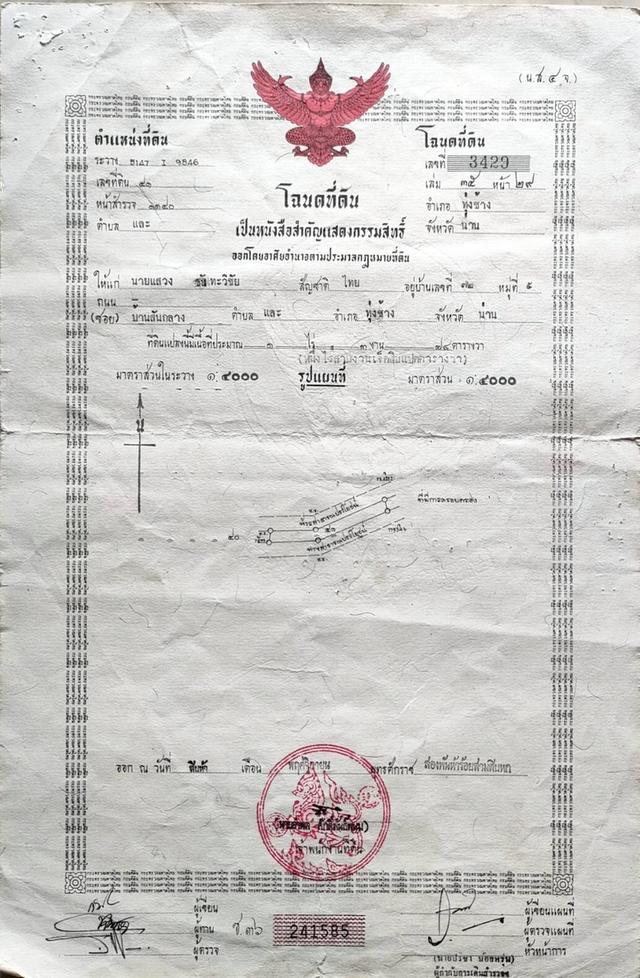 (น.ส.๔ จ.)
ตำแหน่งที่ดิน
ระวาง 5147 I 9846
เลขที่ดิน ๔๑
หน้าสำรวจ
ตำบล และ
โฉนดที่ดิน
เลขที่ 3429
เล่ม ๓๕ หน้า ๒๙
อำเภอ ทุ่งช้าง
จังหวัด น่าน
โฉนดที่ดิน
เป็นหนังสือสำคัญแสดงกรรมสิทธิ์
ออกโดยอาศัยอำนาจตามประมวลกฎหมายที่ดิน
ให้แก่ นายแสวง สัญชาติ ไทย อยู่บ้านเลขที่ ๗๒ หมู่ที่ ๕
ถนน
(ซอย) บ้านสันกลาง ตำบล และ อำเภอ ทุ่งช้าง จังหวัด น่าน
ที่ดินแปลงนี้มีเนื้อที่ประมาณ ๑ ไร่ ๓ งาน ๗๘ ตารางวา
(หนึ่งไร่สามงานเจ็ดสิบแปดตารางวา)
มาตราส่วนในระวาง ๑:๔๐๐๐ รูปแผนที่ มาตราส่วน ๑:๔๐๐๐
น
ที่มีการครอบครอง
ทางสาธารณประโยชน์
๔๑
๔๐
ทางสาธารณประโยชน์
ออก ณ วันที่ สิบห้า เดือน พฤศจิกายน พุทธศักราช สองพันห้าร้อยสามสิบหก
เจ้าพนักงานที่ดิน
ผู้เขียน
ผู้ทาน
ผู้ตรวจ
ช.๓๖ 241585
ผู้เขียนแผนที่
ผู้ตรวจแผนที่
หัวหน้าการ
(นายปรีชา น้อยหรุ่น)
ผู้กำกับการเดินสำรวจ